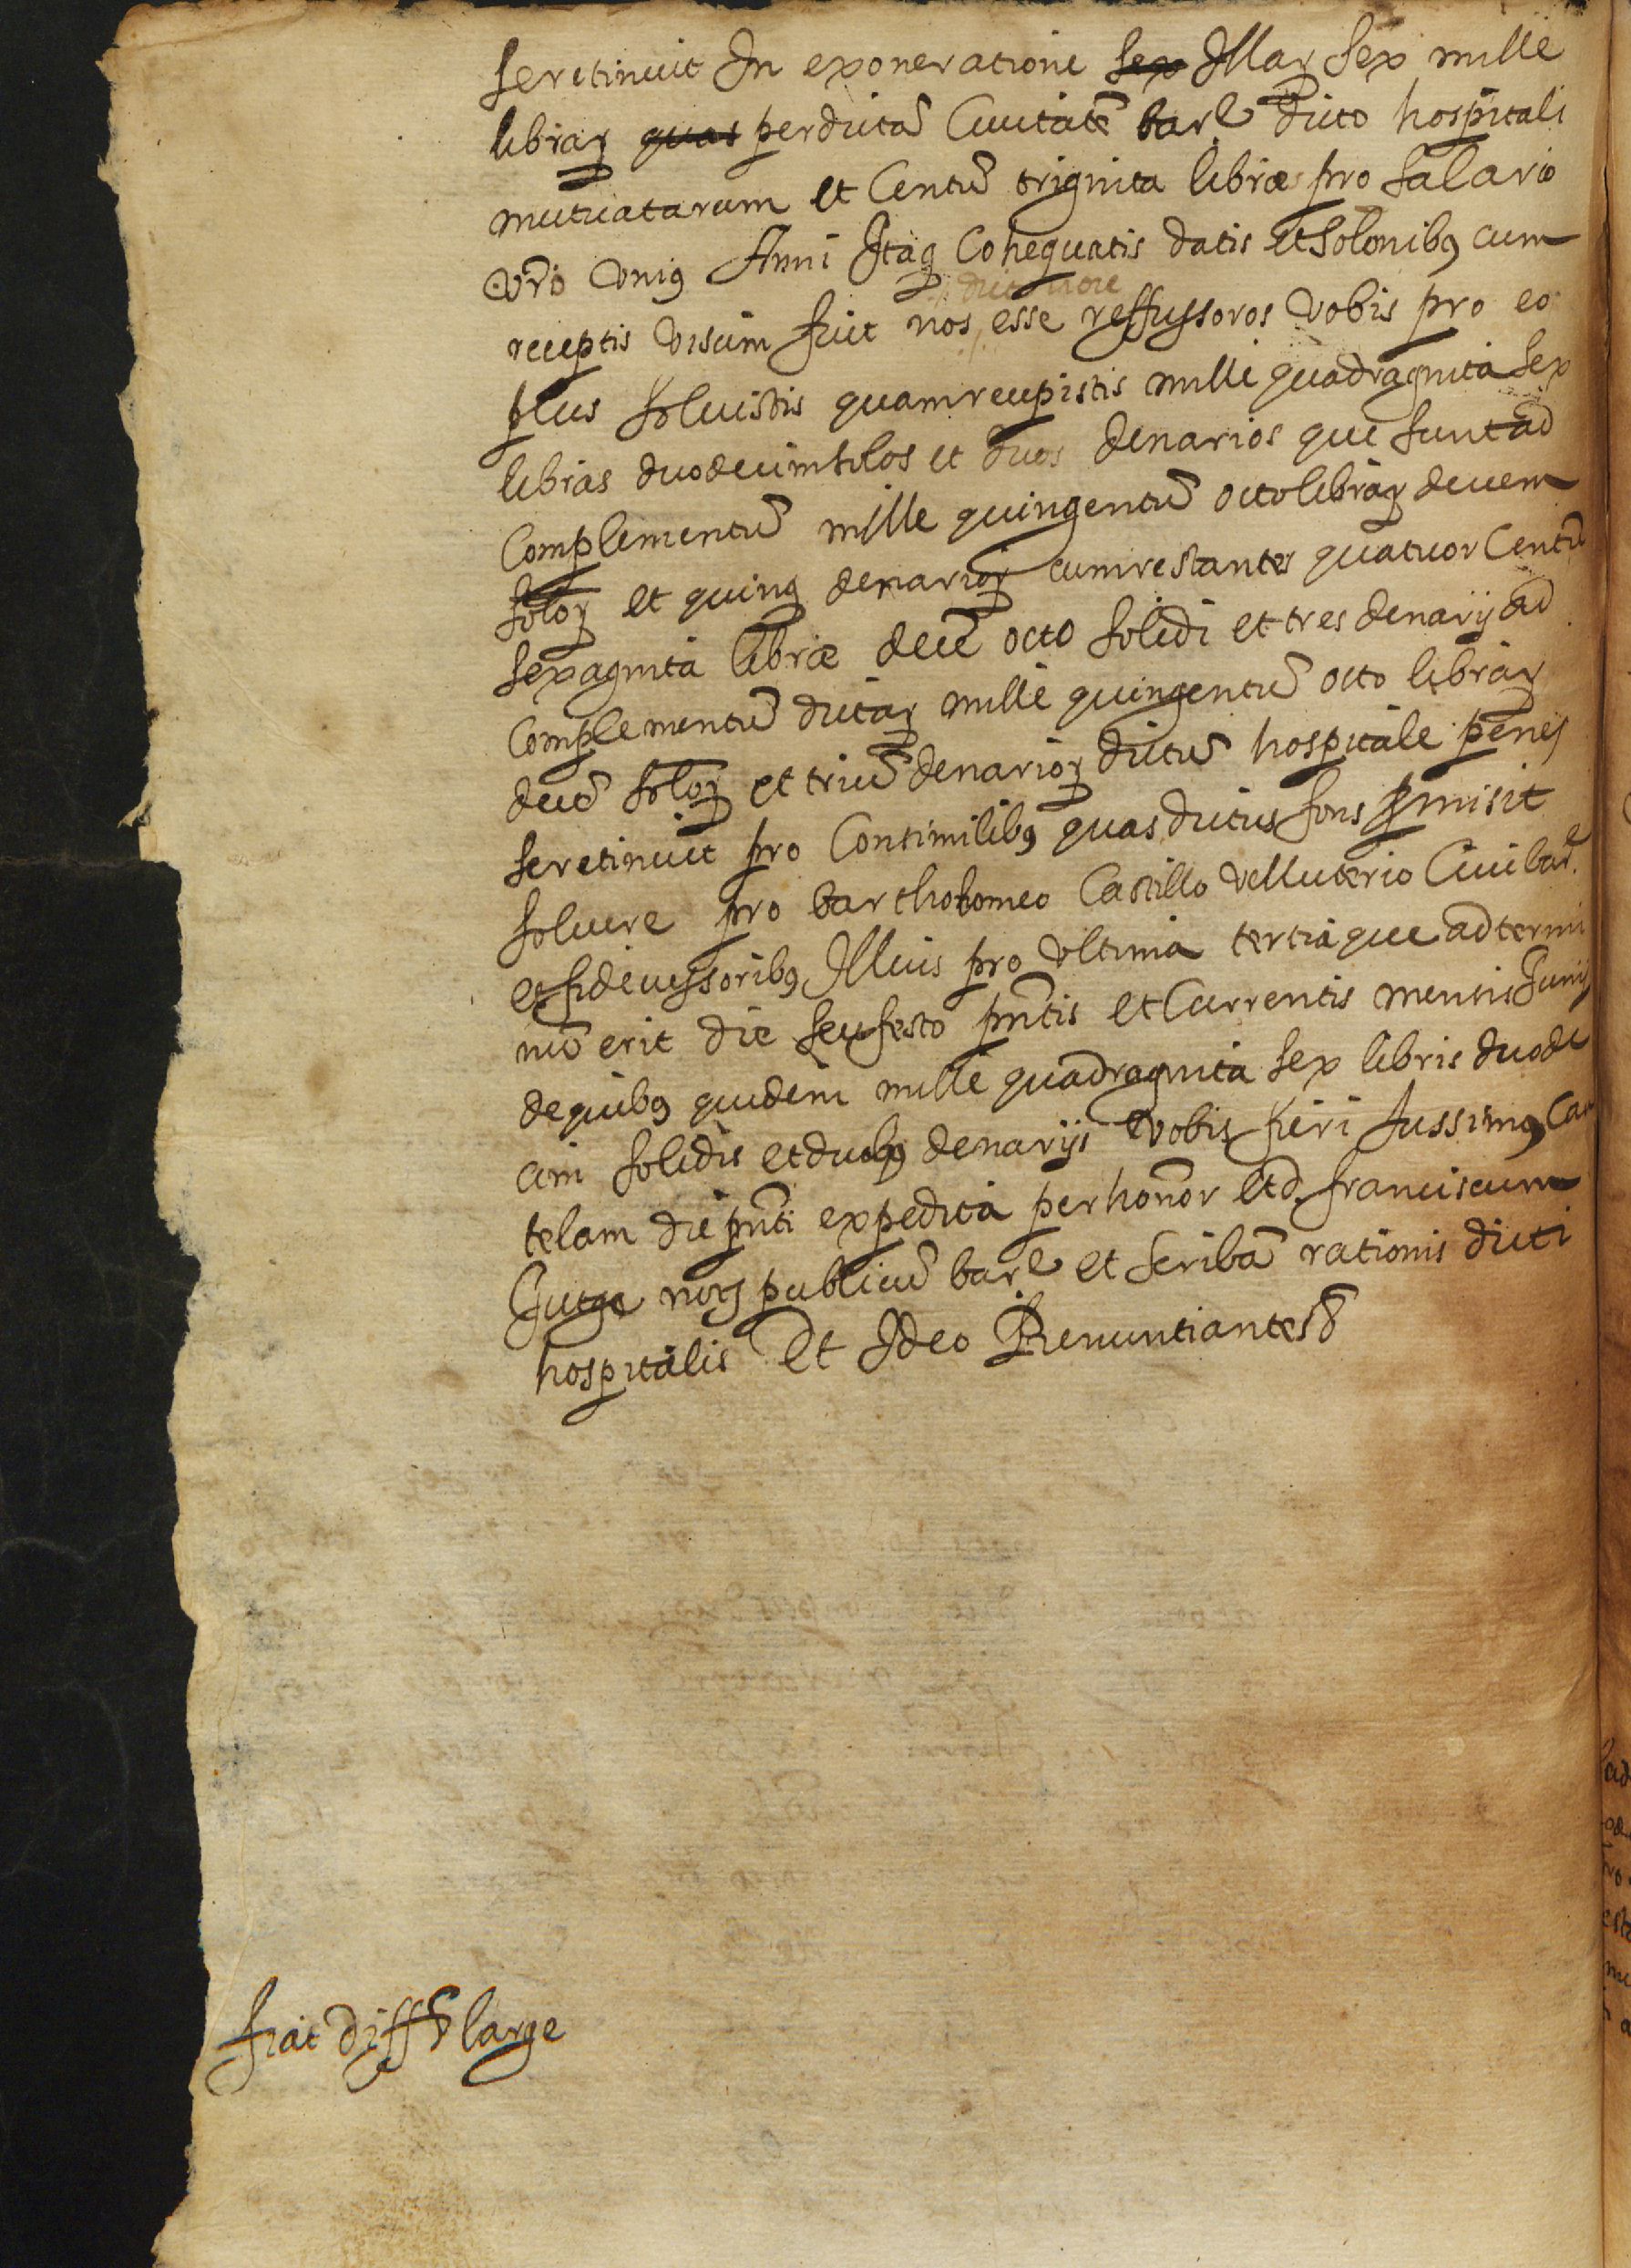 se retinuit In exoneratione sex Illarꝝ sex mille
librarꝝ quas per dictā Ciuitatē barᵉ dicto hospitali
mutuatarum et Centū triginta libræ pro Salario
vr̄o Vniꝯ Anni Itaqꝫ Cohequatis datis et Solonibꝯ cum
receptis Visum fuit nos esse reffussoros Vobis pro eo
plus soluistis quam recepistis mille quadraginta Sex
libras duodecim solos et duos denarios que sunt ad
Complementū mille quingentū octo librarꝝ decem
soloꝝ et quinqꝫ denarioꝝ cum restantes quatuor Centū
sexaginta libræ decē octo solidi et tres denarij ad
Complementū dictaꝝ mille quingentū octo libraꝝ
decē soloꝝ et triū denarioꝝ dictū hospitale penes
se retinuit pro Consimilibꝯ quas dictus fons ꝓmisit
soluere pro bartholomeo Castillo velluterio Ciui barᵉ
et fideiussoribꝯ Illius pro Vltima tertia que ad termi
nū erit die seu festo pn̄tis et Currentis mensis Junij
de quibꝯ quidem mille quadraginta sex libris duode
cim solidis et duobꝯ denarijs Vobis fieri Jussimꝯ Cau
telam die pn̄ti expedita per honor et d. franciscum
Jutge notꝫ publicū barᵉ et Scribā rationis dicti
hospitalis Et Ideo Renuntiantes &
fiat diff & large